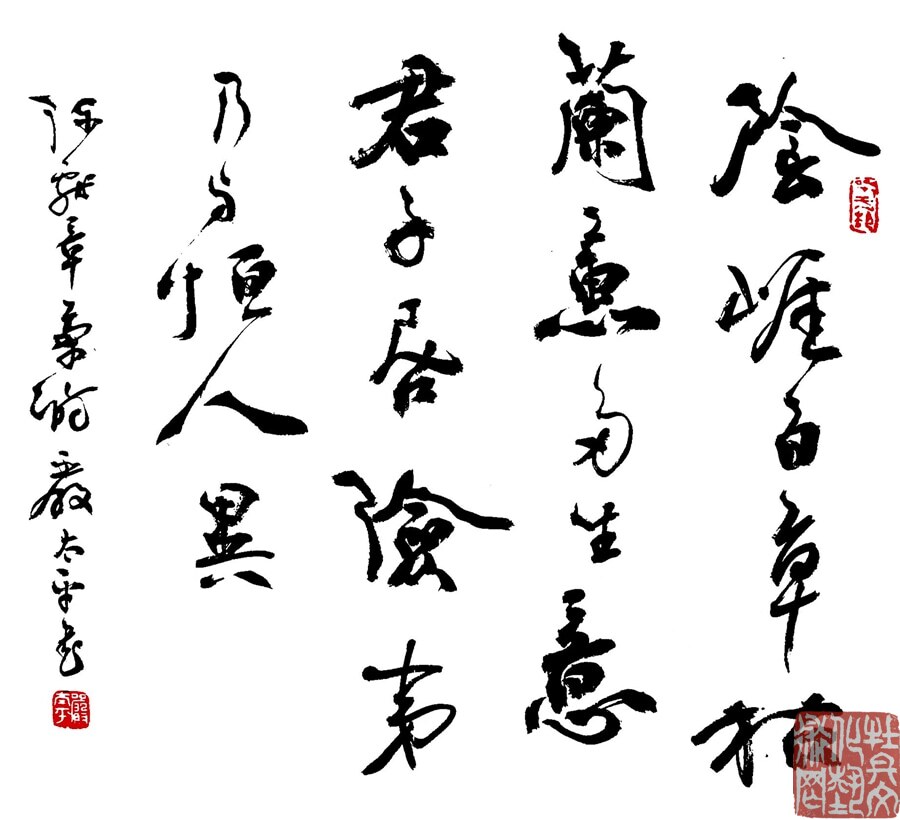 陰崖百草枯
蘭蕙多生意
君子居險夷
乃与恒人異
陳獻章 嚴太平書